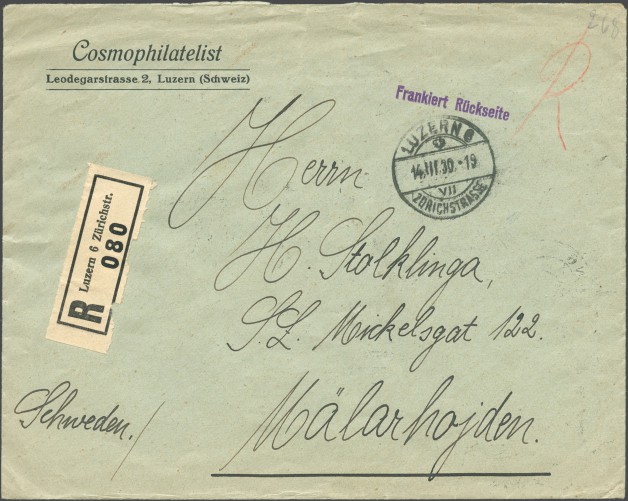 268
R
Cosmophilatelist
Leodegarstrasse 2, Luzern (Schweiz)
Frankiert Rückseite
LUZERN 6
14.III.30.-19
VII
ZÜRICHSTRASSE
R
Luzern 6 Zürichstr.
080
Herrn
H. Stolklinga,
S:L. Mickelsgat 122.
Mälarhojden.
Schweden.